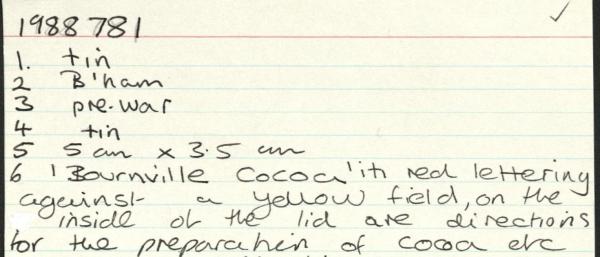 1988 781
1. tin
2 B'ham
3 pre-war
4 tin
5 5 cm x 3.5 cm
6 'Bournville Cocoa' in red lettering
against a yellow field, on the
inside of the lid are directions
for the preparation of cocoa etc